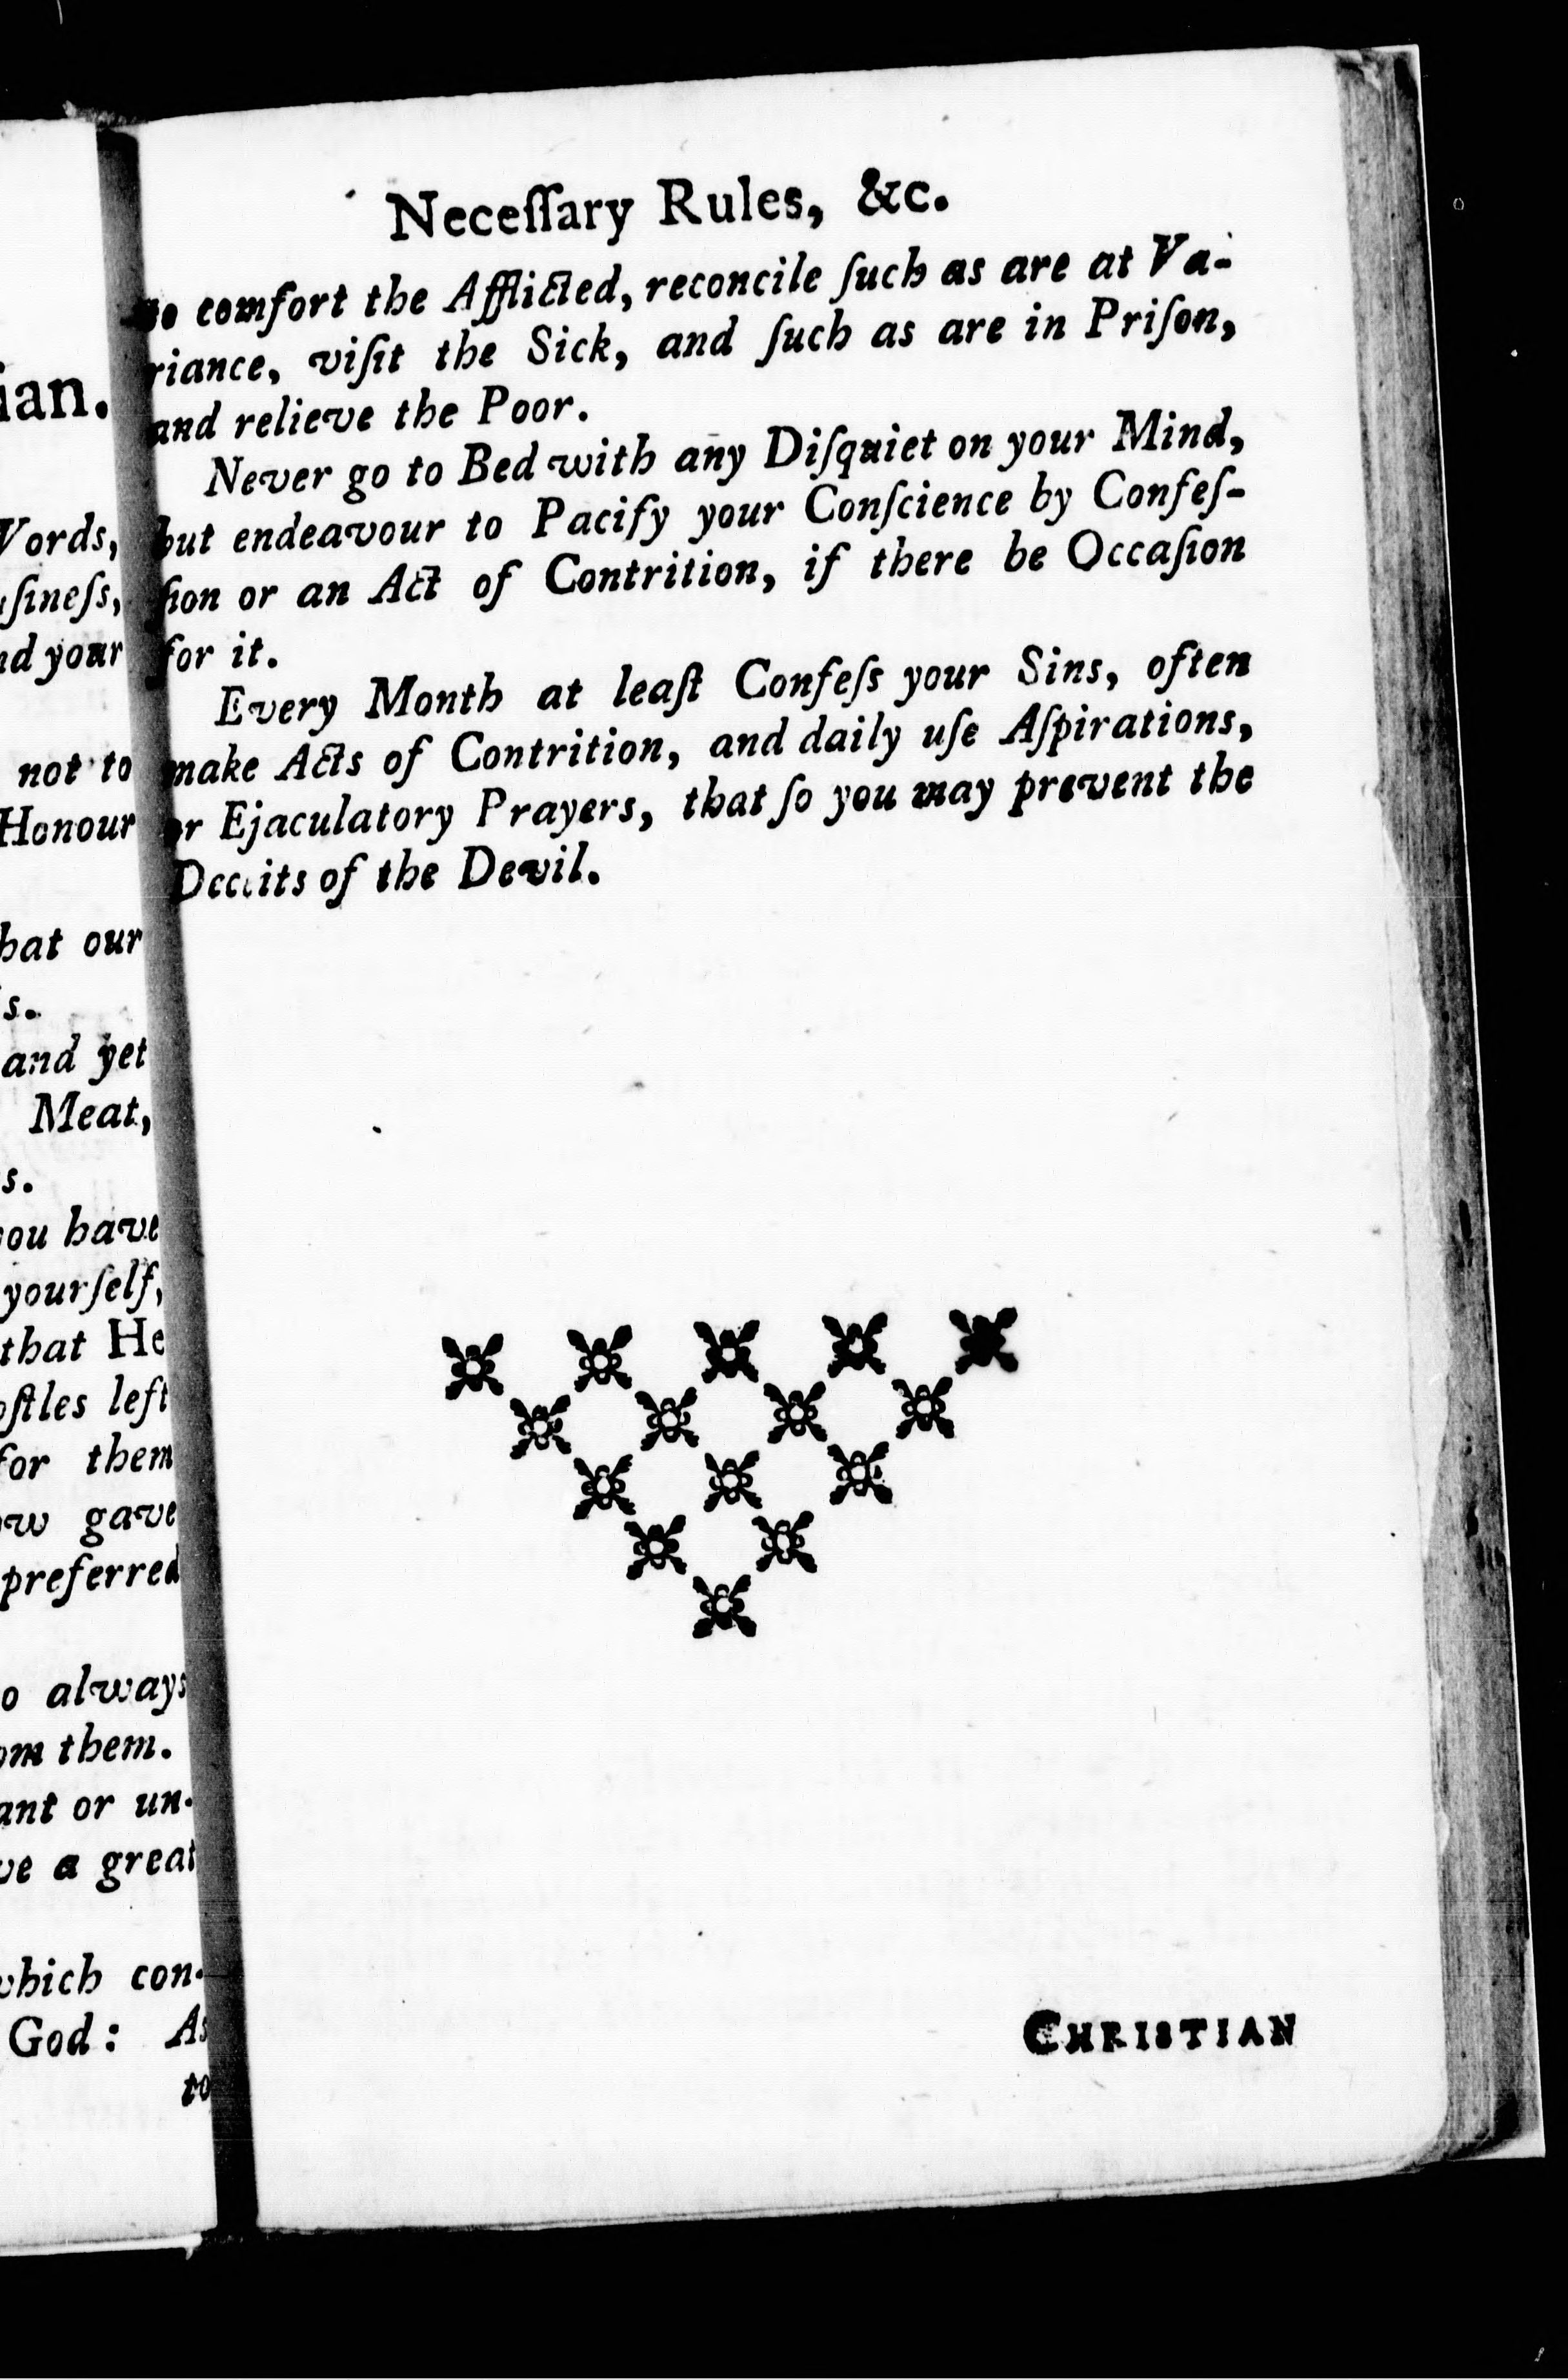 ian.
Words,
ſineſs,
nd your
not to
Honour
hat our
s.
and yet
Meat,
s.
you have
yourſelf,
that He
oſtles left
for them
ow gave
preferred
o always
om them.
ant or un-
ve a great
which con-
God: As
to
Neceſſary Rules, &c.
to comfort the Afflicted, reconcile ſuch as are at Va-
riance, viſit the Sick, and ſuch as are in Priſon,
and relieve the Poor.
Never go to Bed with any Diſquiet on your Mind,
but endeavour to Pacify your Conſcience by Confeſ-
ſion or an Act of Contrition, if there be Occaſion
for it.
Every Month at leaſt Confeſs your Sins, often
make Acts of Contrition, and daily uſe Aſpirations,
or Ejaculatory Prayers, that ſo you may prevent the
Deceits of the Devil.
CHRISTIAN